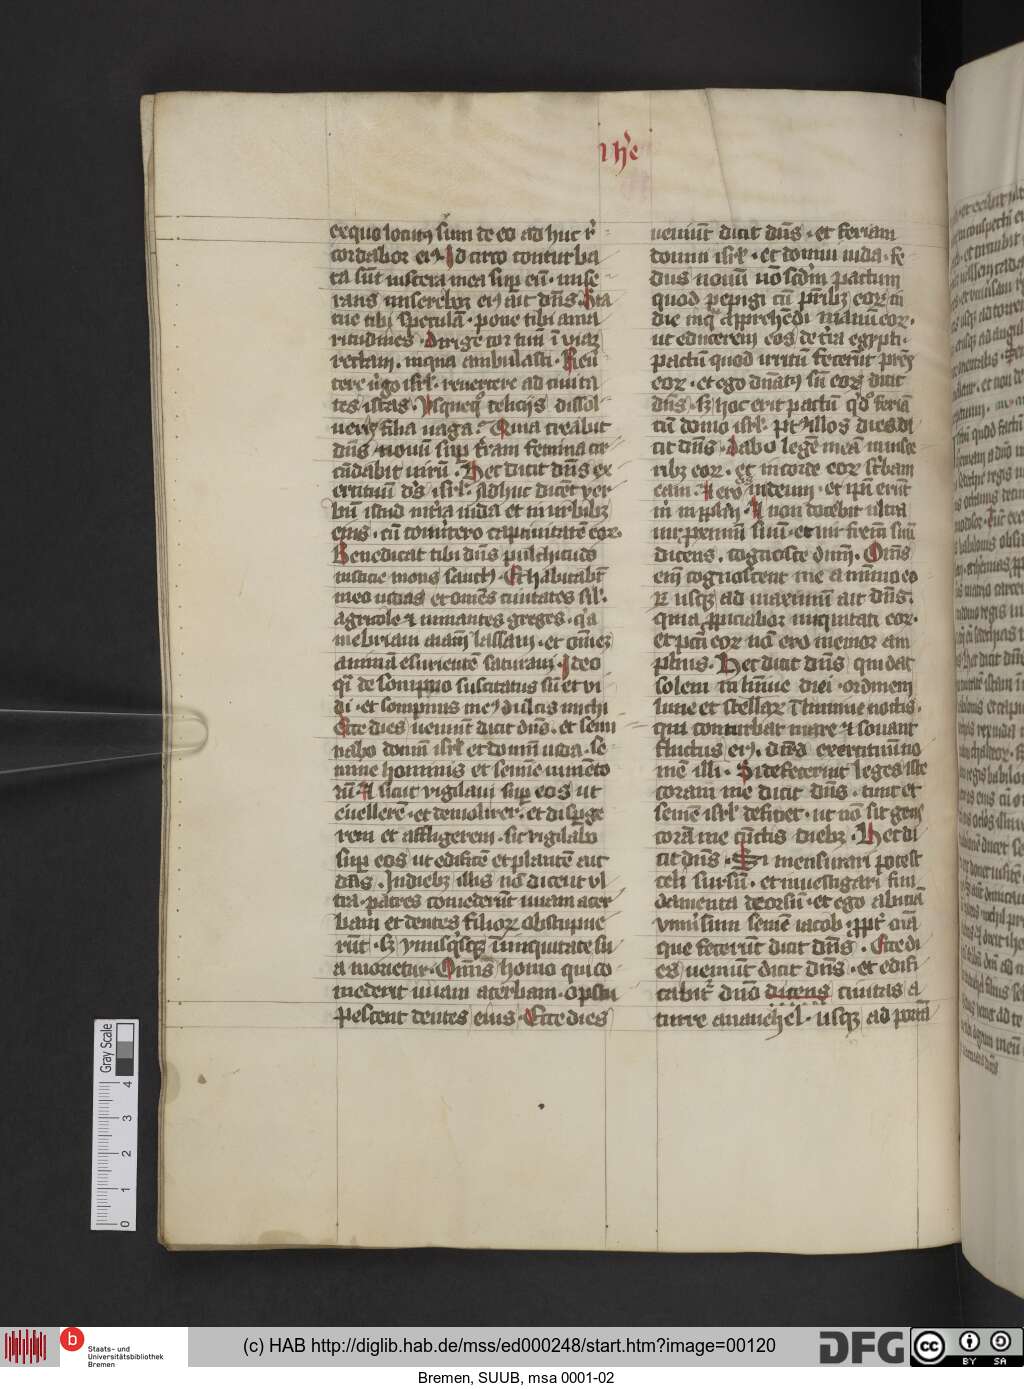 Ihe
ex quo locutus sum de eo ad huc re
cordabor eius Idcirco conturba
ta sunt viscera mea super eum · mise
rans miserebor eius ait dns · Sta
tue tibi speculam · pone tibi ama
ritudines · dirige cor tuum in viam
rectam · in qua ambulasti · Reu
tere virgo isrl · revertere ad civita
tes istas · Usquequo deliciis dissol
ueris filia vaga · Quia creabit
dns novum super terram femina cir
cundabit virum · Hec dicit dns ex
ercituum ds isrl · Adhuc dicent ver
bum istud in terra iuda et in urbibus
eius · cum convertero captivitatem eor
Benedicat tibi dns pulchritudo
iusticie mons sanctus · Et habitabunt
in eo iudas et omnes civitates sil
agricole et minantes greges · quia
inebriavi animam lassam · et omnem
animam esurientem saturavi · Ideo
qi de sompno suscitatus sum et vi
di · et sompnus meus dulcis michi
Ecce dies veniunt dicit dns · et semi
nabo domum isrl et domum iuda · se
mine hominis et semine iumento
rum · Et sicut vigilavi super eos ut
evellerem · et demolirer · et dispge
rem et affligerem · sic vigilabo
super eos ut edificem et plantem ait
dns · In diebus illis non dicent vl
tra · patres comederunt uvam acer
bam et dentes filiorum obstupue
runt · sed unusquisque in iniquitate su
a morietur · Omnis homo qui co
mederit uvam acerbam · opstu
pescent dentes eius · Ecce dies
veniunt dicit dns · et feriam
domui isrl · et domui iuda · fe
dus novum non scdm pactum
quod pepigi cum patribus eor in
die in qua apprehendi manum eor ·
ut educerem eos de terra egypti ·
pactum quod irritum fecerunt
eor · et ego dnatus sum eor dicit
dns · sed hoc erit pactum quod feriam
cum domo isrl · post illos dies di
cit dns · Dabo legem meam in visce
ribus eor · et in corde eor scribam
eam · Et ero eis in deum · et ipsi erunt
mihi in pplm · Et non docebit ultra
vir proximum suum · et vir fratrem suum
dicens · cognosce dnm · Omnes
enim cognoscent me a minimo eo
rum usque ad maximum ait dns ·
quia propiciabor iniquitati eor ·
et peccati eor non ero memor am
plius · Hec dicit dns qui dat
solem in lumine diei · ordinem
lune et stellarum in lumine noctis ·
qui conturbat mare et sonant
fluctus eius · dns exercituum no
men illi · Si defecerint leges iste
coram me dicit dns · tunc et
semen isrl deficiet · ut non sit gens
coram me cunctis diebus · Hec di
cit dns · Si mensurari potest
celi sursum · et investigari fun
damenta deorsum · et ego abiciam
universum semen iacob · propter omnia
que fecerunt dicit dns · Ecce di
es veniunt dicit dns · et edifi
cabitur dno dicens civitas a
turre ananehel · usque ad portam
Gray Scale
4
3
2
1
0
b
Staats- und
Universitätsbibliothek
Bremen
(c) HAB http://diglib.hab.de/mss/ed000248/start.htm?image=00120
DFG
cc BY SA
Bremen, SUUB, msa 0001-02